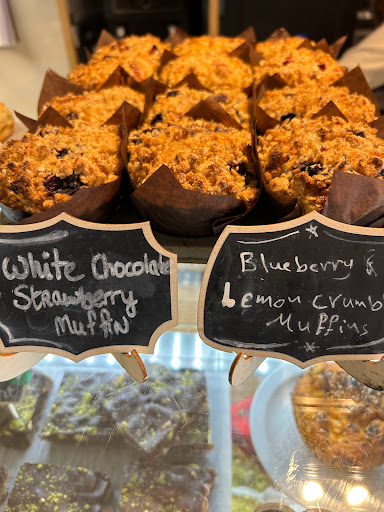 White Chocolate
Strawberry
Muffin
Blueberry &
Lemon crumb
Muffins